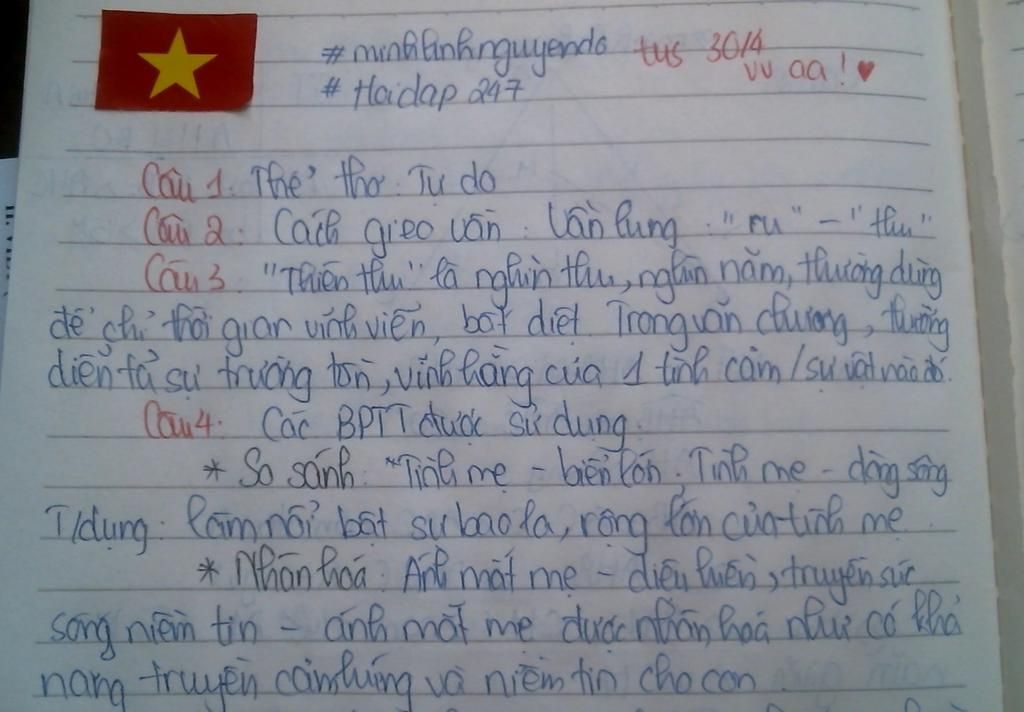 #minhlinhnguyendo tus 30/4
vv aa! ♥
# Hoidap 247
Câu 1. Thể thơ: Tự do
Câu 2: Cách gieo vần: Vần lưng: "ru" - "thu"
Câu 3: "Thiên thu" là nghìn thu, nghìn năm, thường dùng
để chỉ thời gian vĩnh viễn, bất diệt. Trong văn chương, thường
diễn tả sự trường tồn, vĩnh hằng của 1 tình cảm / sự vật nào đó.
Câu 4: Các BPTT được sử dụng:
* So sánh: "Tình mẹ - biển lớn. Tình mẹ - dòng sông
T/dụng: làm nổi bật sự bao la, rộng lớn của tình mẹ.
* Nhân hoá: Ánh mắt mẹ - diệu hiền, truyền sức
sống niềm tin - ánh mắt mẹ được nhân hoá như có khả
năng truyền cảm hứng và niềm tin cho con.